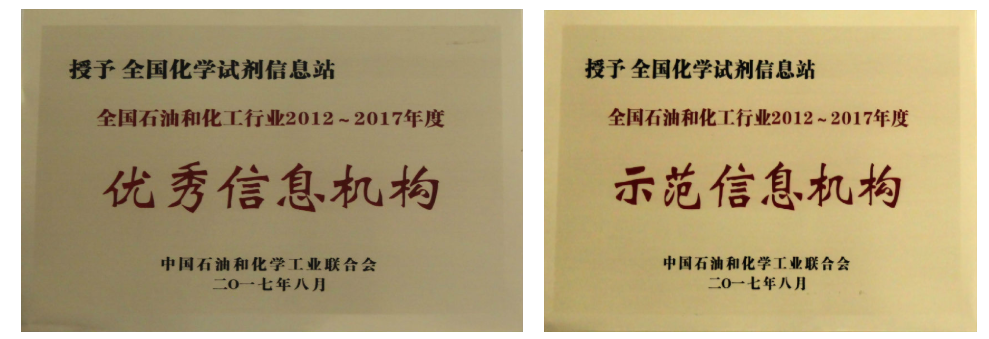 授予 全国化学试剂信息站
全国石油和化工行业2012～2017年度
优秀信息机构
中国石油和化学工业联合会
二〇一七年八月
授予 全国化学试剂信息站
全国石油和化工行业2012～2017年度
示范信息机构
中国石油和化学工业联合会
二〇一七年八月